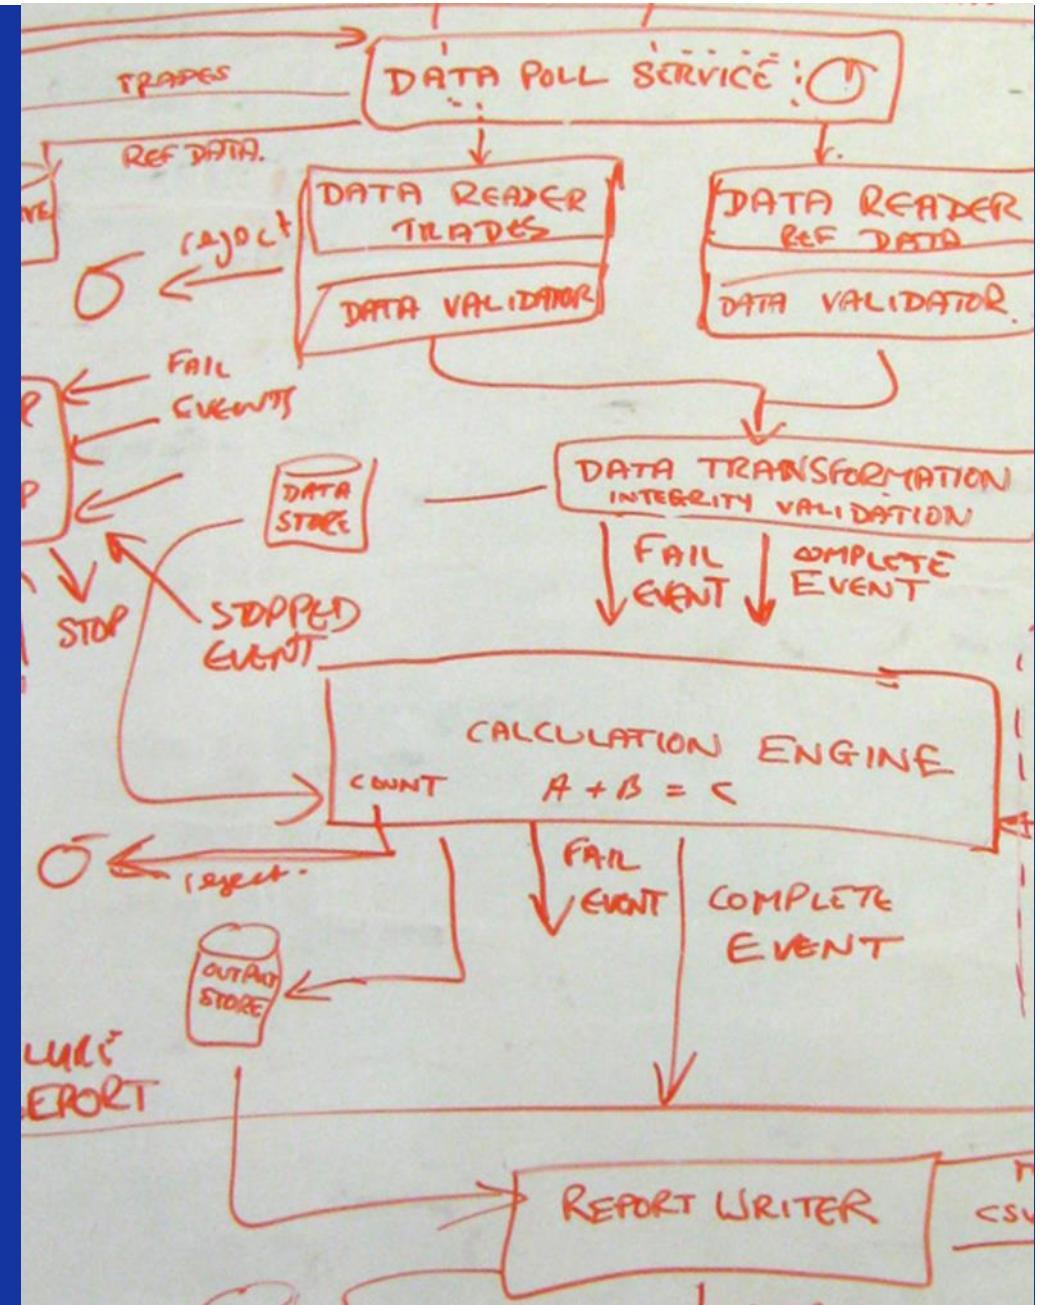 TRADES
DATA POLL SERVICE
REF DATA.
DATA READER
TRADES
DATA VALIDATOR
DATA READER
REF DATA
DATA VALIDATOR.
reject
FAIL
EVENTS
DATA
STORE
DATA TRANSFORMATION
INTEGRITY VALIDATION
FAIL
EVENT
COMPLETE
EVENT
STOP
STOPPED
EVENT
CALCULATION ENGINE
COUNT
A + B = C
reject.
FAIL
EVENT
COMPLETE
EVENT
OUTPUT
STORE
LURE
EPORT
REPORT WRITER
CSV